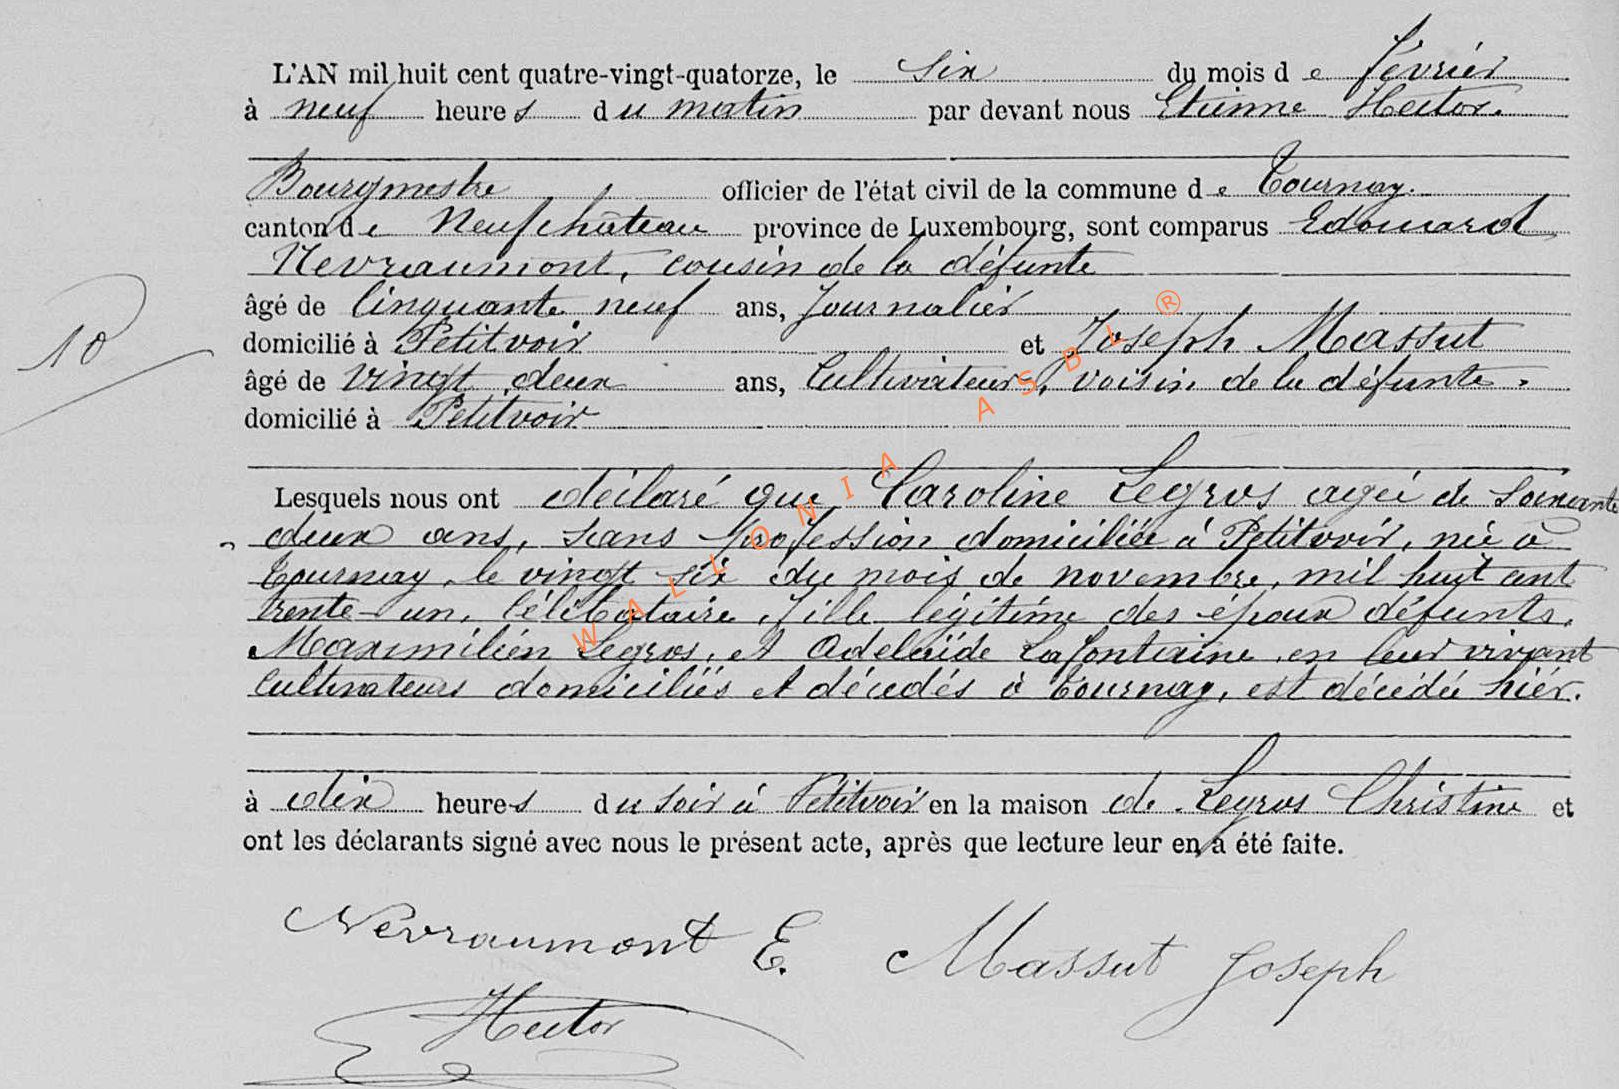 L'AN mil huit cent quatre-vingt-quatorze, le six du mois de février
à neuf heures du matin par devant nous Etienne Hector.
Bourgmestre officier de l'état civil de la commune de Tournay.
canton de Neufchâteau province de Luxembourg, sont comparus Edouard
Nevraumont, cousin de la défunte
âgé de Cinquante neuf ans, Journalier
domicilié à Petitvoir et Joseph Massut
âgé de vingt deux ans, Cultivateur, voisin de la défunte.
domicilié à Petitvoir
10
Lesquels nous ont déclaré que Caroline Legros agée de soixante
deux ans, sans profession domiciliée à Petitvoir, née à
Tournay, le vingt six du mois de novembre, mil huit cent
trente-un, Célibataire, fille légitime des époux défunts,
Maximilien Legros, et Adelaïde Lafontaine, en leur vivant
cultivateurs domiciliés et décédés à Tournay, est décédée hier.
à dix heures du soir à Petitvoir en la maison de Legros Christine et
ont les déclarants signé avec nous le présent acte, après que lecture leur en a été faite.
Nevraumont E. Massut Joseph
Hector
WALLONIA ASBL ®